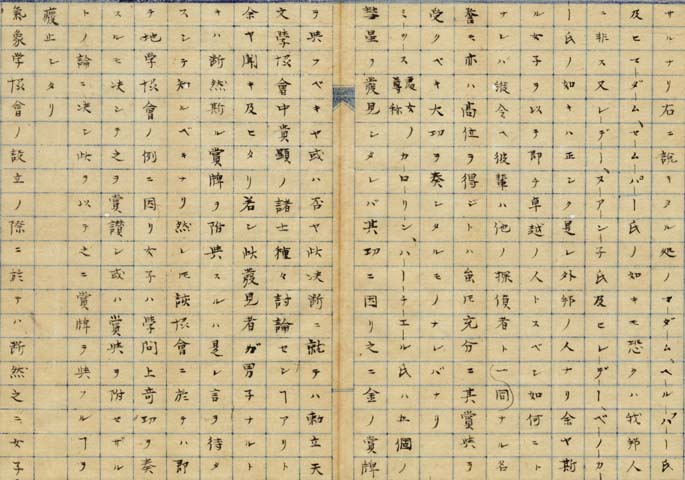 サルナリ右ニ説キタル処ノマダム、ヘルバー氏
及ヒマーダム、セームパー氏ノ如キモ恐クハ我邦人
ニ非ス又レデー、スアーン子氏及ヒレデー、ベノーカ
ー氏ノ如キハ正シク是レ外邦ノ人ナリ余ヤ斯
ル女子ヲ以テ即チ卓越ノ人トスベシ如何ニト
ナレバ縦令ヘ彼輩ハ他ノ探偵者ト一同ナル名
誉モ亦ハ高位ヲ得ジトハ雖𪜈充分ニ其賞典ヲ
受クベキ大功ヲ奏シタルモノナレバナリ
ミツース處女ノ尊称ノカローリン、ハーチエール氏ハ五個ノ
彗星ヲ発見シタレバ其功ニ因リ之ニ金ノ賞牌
ヲ典フベキヤ或ハ否ヤ此决断ニ就テハ勅立天
文學協會中貴顕ノ諸士種々討論セシヿアリト
余ヤ聞キ及ヒタリ若シ此發見者ガ男子ナルト
キハ断然斯ル賞牌ヲ附典スルハ是レ言ヲ待タ
スシテ知ルベキナリ然レ𪜈該協會ニ於テハ即
チ地学協會ノ例ニ因リ女子ハ学問上奇功ヲ奏
スルモ决シテ之ヲ賞讃シ或ハ賞典ヲ附セザル
トノ論ニ决シ此ヲ以テ之ニ賞牌ヲ典フルヿヲ
廢止シタリ
氣象学協會ノ設立ノ際ニ於テハ断然之ニ女子